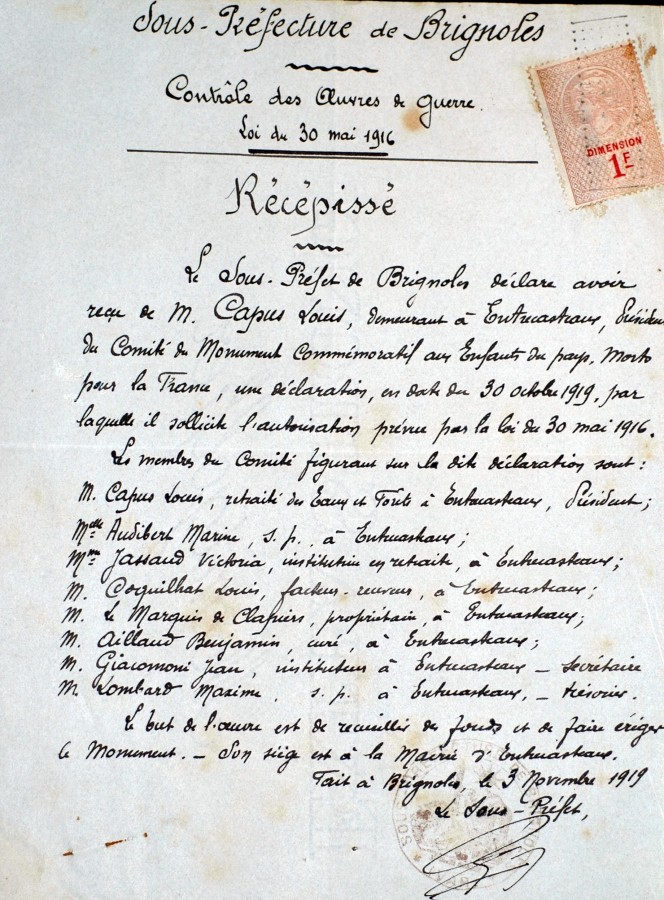 Sous-Préfecture de Brignoles
Contrôle des Œuvres de Guerre.
Loi du 30 mai 1916
DIMENSION
1F
Récépissé
Le Sous-Préfet de Brignoles déclare avoir
reçu de M. Capus Louis, demeurant à Entrecasteaux, Président
du Comité du Monument Commémoratif aux Enfants du pays, Morts
pour la France, une déclaration, en date du 30 octobre 1919, par
laquelle il sollicite l'autorisation prévue par la loi du 30 mai 1916.
Les membres du Comité figurant sur la dite déclaration sont :
M. Capus Louis, retraité des Eaux et Forêts à Entrecasteaux, Président;
Melle Audibert Marine, s. p., à Entrecasteaux;
Mme Jassaud Victoria, institutrice en retraite, à Entrecasteaux;
M. Coquilhat Louis, facteur-receveur, à Entrecasteaux;
M. Le Marquis de Clapiers, propriétaire, à Entrecasteaux;
M. Aillaud Benjamin, curé, à Entrecasteaux;
M. Giacomoni Jean, instituteur à Entrecasteaux – Secrétaire
M. Lombard Maxime, s. p. à Entrecasteaux, – trésorier.
Le but de l'œuvre est de recueillir des fonds et de faire ériger
le Monument. – Son siège est à la Mairie d'Entrecasteaux.
Fait à Brignoles, le 3 Novembre 1919
Le Sous-Préfet,